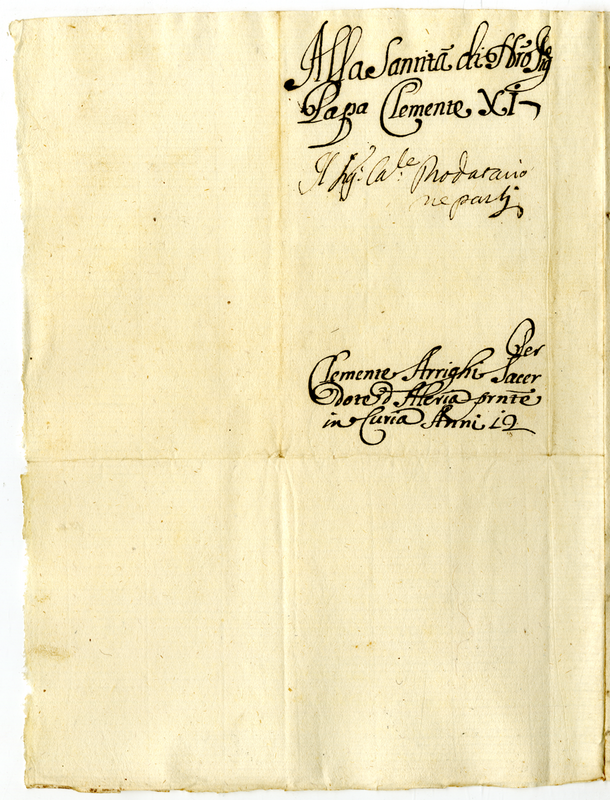 Alla Santità di Nrõ Sig
Papa Clemente XI
Il Sig: Ca:le Prodatario
ne parli
Per
Clemente Arrighi Sacer
dote d'Aleria prnte
in Curia Anni 12